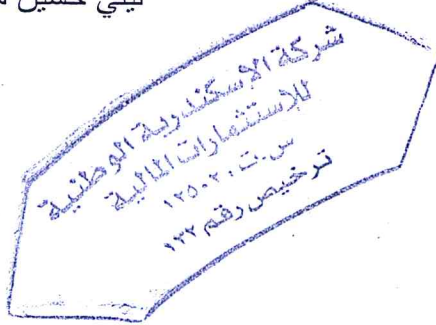 حسين
شركة الاسكندرية الوطنية
للاستثمارات المالية
س.ت. ١٢٥٠٢٠
ترخيص رقم ١٣٢